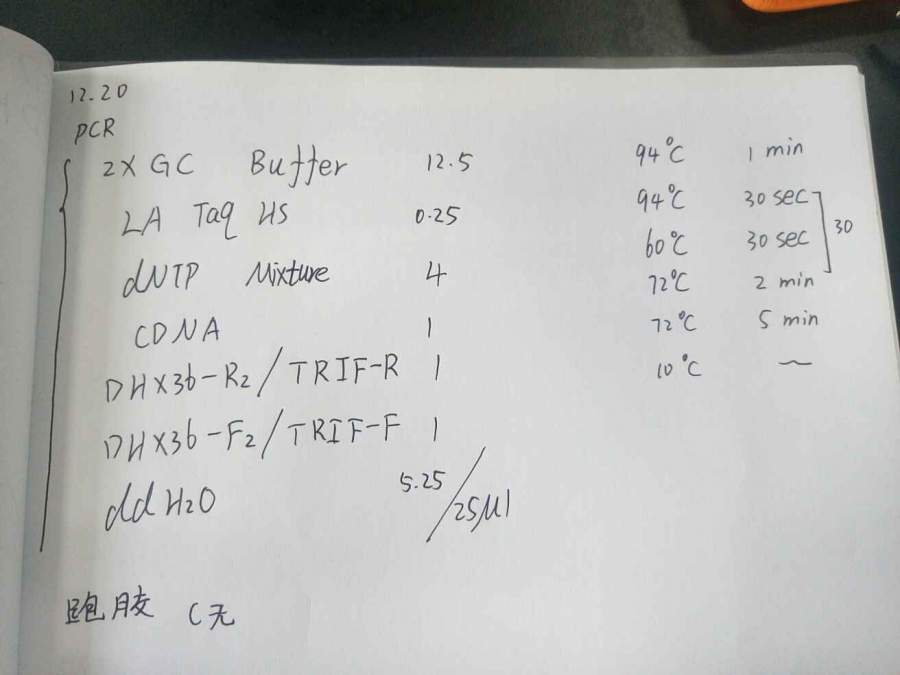 12.20
PCR
2X GC Buffer 12.5
LA Taq HS 0.25
dNTP Mixture 4
CDNA 1
DHX36-R2/TRIF-R 1
DHX36-F2/TRIF-F 1
ddH2O 5.25/25μl
94℃ 1 min
94℃ 30 sec
60℃ 30 sec 30
72℃ 2 min
72℃ 5 min
10℃ ~
跑胶 C无